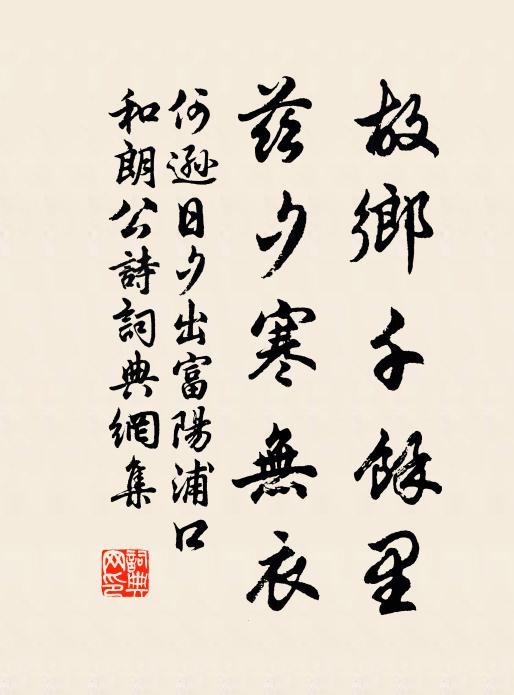 故鄉千餘里
茲夕寒無衣
何遜日夕出富陽浦口
和朗公詩詞典網集
詞典網印